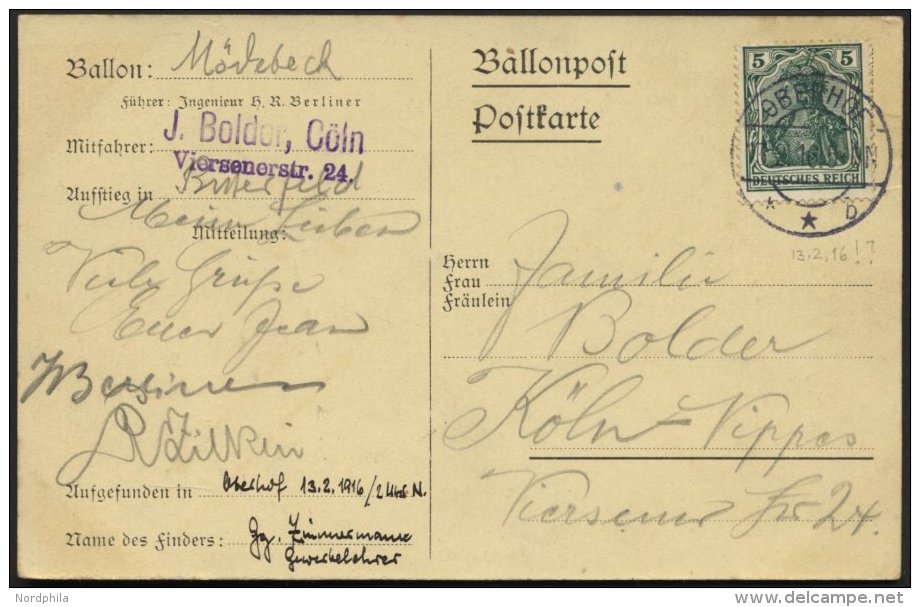 Ballon: Mödebeck
Führer: Ingenieur H. R. Berliner
Mitfahrer: J. Bolder, Cöln
Viersenerstr. 24.
Aufstieg in Bitterfeld
Mitteilung:
Meine Lieben
Viele Grüße
Euer Jean
Berliner
Aufgefunden in Oberhof 13.2.1916/2 Uhr N.
Name des Finders: Gg. Zimmermann
Gewerbelehrer
Ballonpost
Postkarte
5 5
DEUTSCHES REICH
OBERHOF
* ★ b
13.2.16!?
Herrn
Frau
Fräulein
Familie
Bolder
Köln=Nippes
Viersener Str 24.
Nordphila
delcampe.net